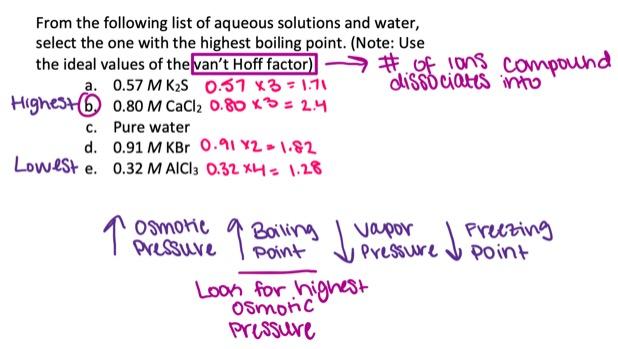 From the following list of aqueous solutions and water,
select the one with the highest boiling point. (Note: Use
the ideal values of the van't Hoff factor) → # of ions compound
dissociates into
a. 0.57 M K₂S 0.57 x3 = 1.71
Highest b. 0.80 M CaCl₂ 0.80 x3 = 2.4
c. Pure water
d. 0.91 M KBr 0.91 x2 = 1.82
Lowest e. 0.32 M AlCl₃ 0.32 x4 = 1.28
↑ Osmotic Pressure ↑ Boiling Point ↓ Vapor Pressure ↓ Freezing Point
Look for highest
Osmotic
Pressure